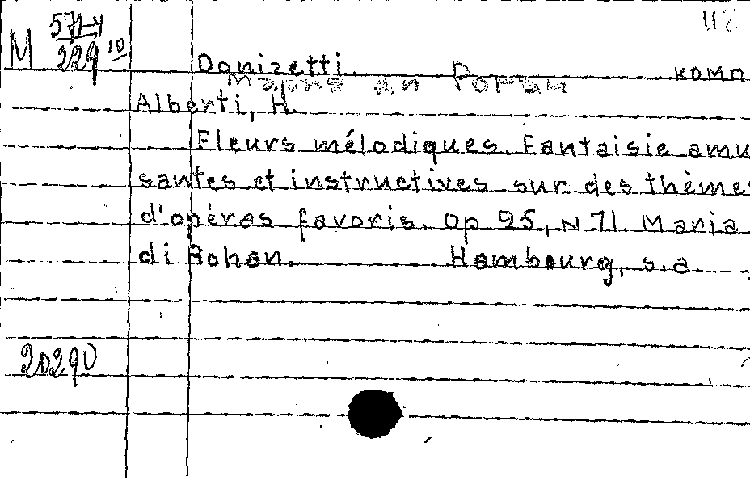 M 571-4
229 10
Donizetti. комп
Мария ди Роган
Alberti, H.
Fleurs mélodiques. Fantaisie amu
santes et instructives sur des thèmes
d'opéras favoris. Op 95, N 71 Maria
di Rohan. Hambourg, s.a.
20290